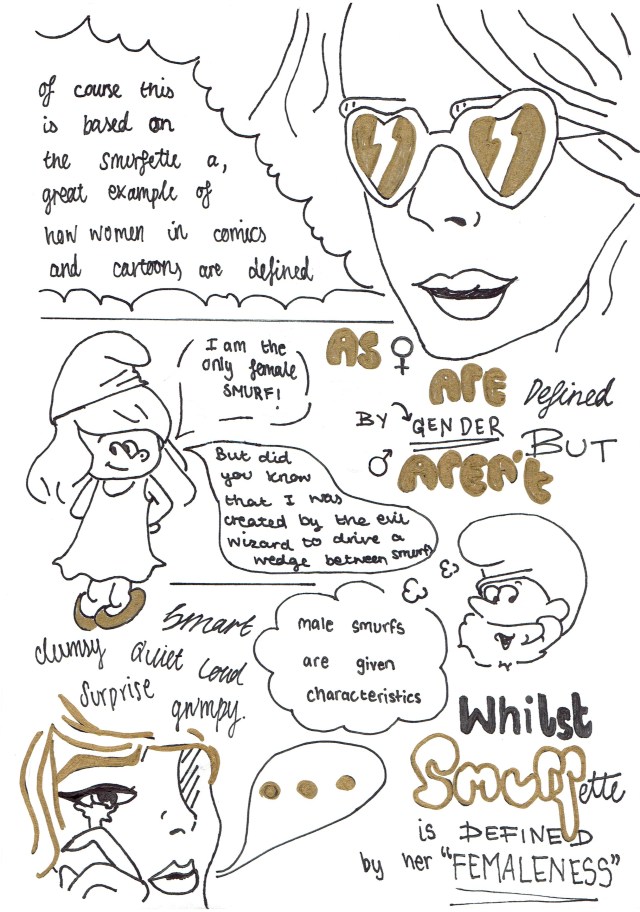 of course this
is based on
the smurfette a,
great example of
how women in comics
and cartoons are defined
I am the
only female
SMURF!
AS ♀
ARE Defined
BY GENDER BUT
♂ AREN't
But did
you know
that I was
created by the evil
wizard to drive a
wedge between smurfs
Smart
clumsy Quiet Loud
Surprise grumpy.
male smurfs
are given
characteristics
Whilst
Smurfette
is DEFINED
by her "FEMALENESS"